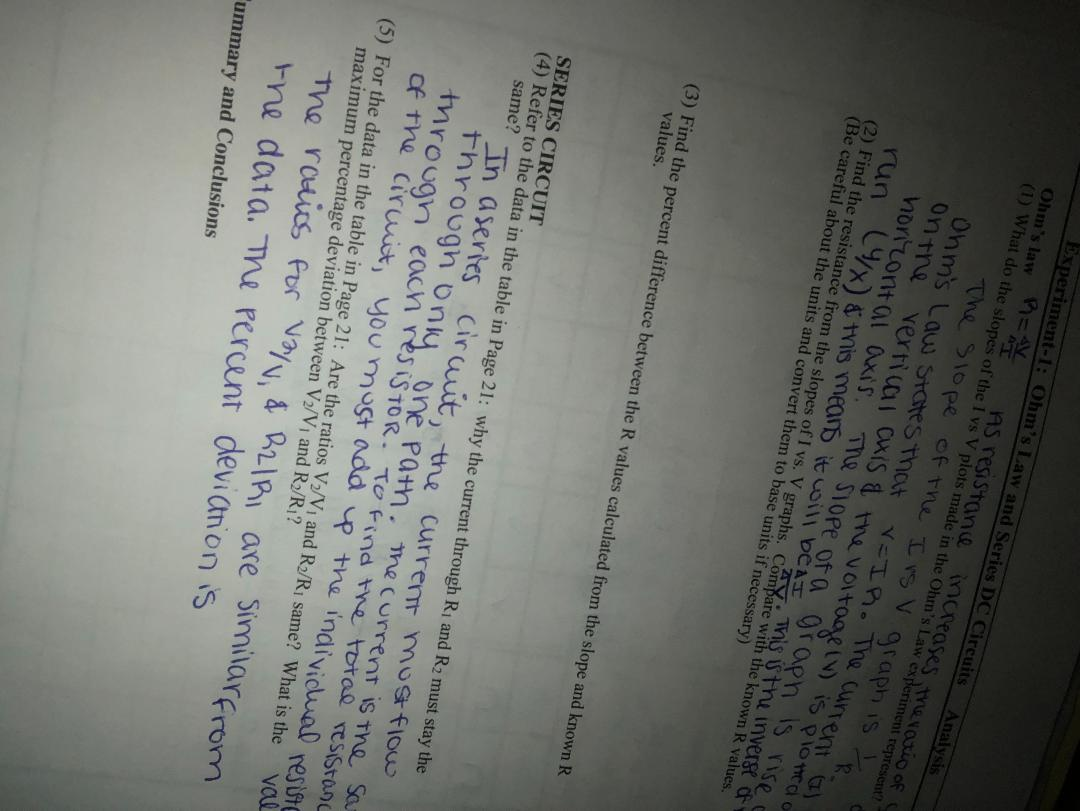 Experiment-1: Ohm's Law and Series DC Circuits Analysis
Ohm's law R = ΔV/ΔI
As resistance increases, the ratio of
(1) What do the slopes of the I vs V plots made in the Ohm's Law experiment represent?
The slope of the I vs V graph is 1/R.
Ohm's Law states that V=IR. The current (I)
on the vertical axis & the voltage (V) is plotted
horizontal axis. The slope of a graph is rise
run (y/x) & this means it will be ΔI/ΔV. This is the inverse of
(2) Find the resistance from the slopes of I vs. V graphs. Compare with the known R values.
(Be careful about the units and convert them to base units if necessary)
(3) Find the percent difference between the R values calculated from the slope and known R
values.
SERIES CIRCUIT
(4) Refer to the data in the table in Page 21: why the current through R1 and R2 must stay the
same?
In a series circuit, the current must flow
through only one path. The current is the
through each resistor. To find the total resistanc
of the circuit, you must add up the individual
(5) For the data in the table in Page 21: Are the ratios V2/V1 and R2/R1 same? What is the
maximum percentage deviation between V2/V1 and R2/R1?
The ratios for V2/V1 & R2/R1 are similar from
the data. The percent deviation is
ummary and Conclusions